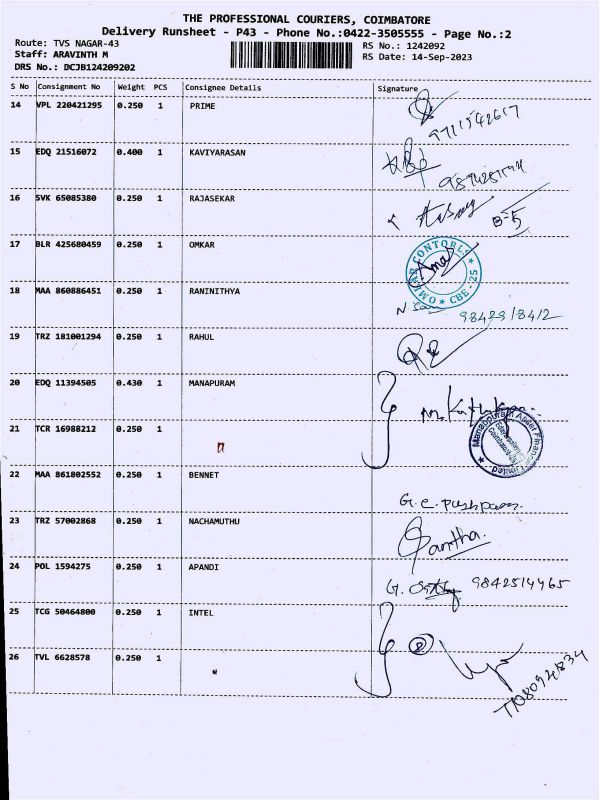 THE PROFESSIONAL COURIERS, COIMBATORE
Delivery Runsheet - P43 - Phone No.:0422-3505555 - Page No.:2
Route: TVS NAGAR-43 RS No.: 1242092
Staff: ARAVINTH M RS Date: 14-Sep-2023
DRS No.: DCJB124209202
S No Consignment No Weight PCS Consignee Details Signature
14 VPL 220421295 0.250 1 PRIME
15 EDQ 21516072 0.400 1 KAVIYARASAN
16 SVK 65085380 0.250 1 RAJASEKAR
17 BLR 425680459 0.250 1 OMKAR
OMKAR CONTORLS CBE-25
18 MAA 860886451 0.250 1 RANINITHYA
9842918412
19 TRZ 181001294 0.250 1 RAHUL
20 EDQ 11394505 0.430 1 MANAPURAM
21 TCR 16988212 0.250 1 "
22 MAA 861802552 0.250 1 BENNET
G.E. Pushpam.
23 TRZ 57002868 0.250 1 NACHAMUTHU
24 POL 1594275 0.250 1 APANDI
9842514465
25 TCG 50464800 0.250 1 INTEL
26 TVL 6628578 0.250 1 "